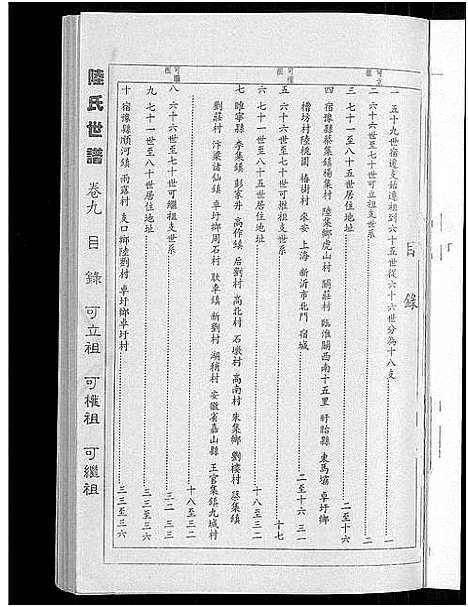 目錄
一 五十九世宿遷支始遷祖到六十五世從六十六世分為十八支 一
可立祖
二 六十六世至七十世可立祖支世系 二
三 七十一世至八十五世居住地址 二至十六
四 宿豫縣蔡集鎮楊集村 陸集鄉虎山村 關莊村 臨淮關西南十五里 盱眙縣 東馬壩 卓圩鄉
槽坊村陸桃園 椿樹村 來安 上海 新沂市北門 宿城 二至十六 三一
可權祖
五 六十六世至七十世可權祖支世系 十七
六 七十一世至八十五世居住地址 十八至三二
七 睢寧縣 李集鎮 彭家井 高作鎮 后劉村 高北村 石墩村 高南村 朱集鄉 劉樓村 蔡集鎮
劉莊村 汴梁諸仙鎮 卓圩鄉周石村 耿車鎮 新劉村 湖稍村 安徽省嘉山縣 王官集鎮九城村
十八至三二
可繼祖
八 六十六世至七十世可繼祖支世系 三二 三三
九 七十一世至八十世居住地址 三三至三六
十 宿豫縣順河鎮 雨露村 支口鄉陸劉村 卓圩鄉卓圩村 三三至三六
陸氏世譜 卷九 目錄 可立祖 可權祖 可繼祖